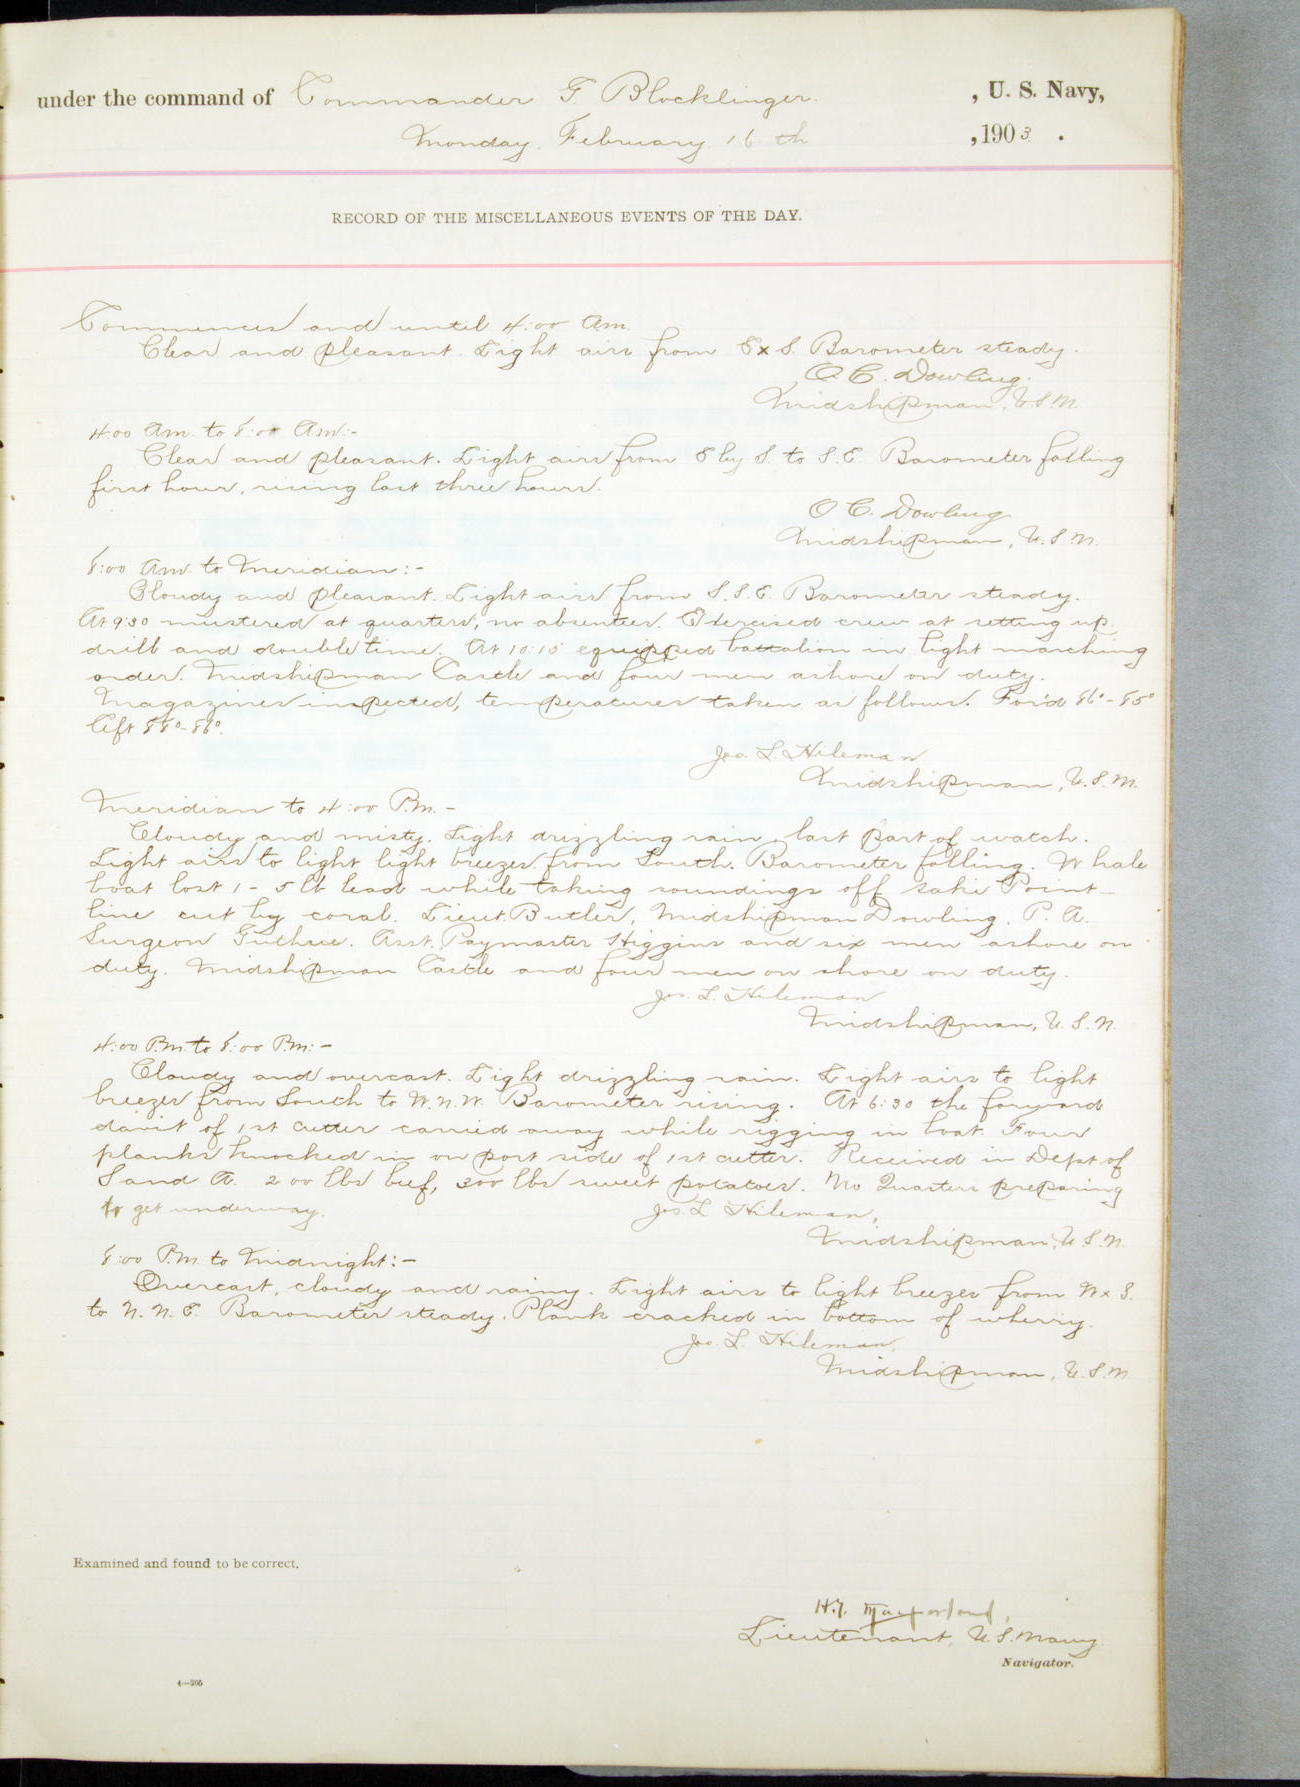 under the command of Commander F. Blocklinger. , U. S. Navy,
Monday, February 16th ,1903.
RECORD OF THE MISCELLANEOUS EVENTS OF THE DAY.
Commences and until 4:00 A.m.
Clear and pleasant. Light airs from E x S. Barometer steady.
O. C. Dowling.
Midshipman, U.S.N.
4:00 A.m. to 8:00 A.m:-
Clear and pleasant. Light airs from E by S. to S.E. Barometer falling
first hour, rising last three hours.
O C. Dowling
Midshipman, U.S.N.
8:00 A.m. to Meridian:-
Cloudy and pleasant. Light airs from S.S.E. Barometer steady.
At 9:30 mustered at quarters, no absentees. Exercised crew at setting up
drill and double time. At 10:15 equipped battalion in light marching
order. Midshipman Castle and four men ashore on duty.
Magazines inspected, temperatures taken as follows. For'd 86°-85°
Aft 88°-86°.
Jos. L. Hileman
Midshipman, U.S.N.
Meridian to 4:00 P.m.-
Cloudy and misty. Light drizzling rain last part of watch.
Light airs to light light breezes from South. Barometer falling. Whale
boat lost 1-5 lb lead while taking soundings off Saki Point-
line cut by coral. Lieut. Butler, Midshipman Dowling, P. A.
Surgeon Guthrie. Asst. Paymaster Higgins and six men ashore on
duty. Midshipman Castle and four men on shore on duty.
Jos. L. Hileman
Midshipman, U.S.N.
4:00 P.m. to 8:00 P.m:-
Cloudy and overcast. Light drizzling rain. Light airs to light
breezes from South to W.N.W. Barometer rising. At 6:30 the forward
davit of 1st cutter carried away while rigging in boat. Four
planks knocked in on port side of 1st cutter. Received in Dept of
S and A. 200 lbs beef, 300 lbs sweet potatoes. No Quarters preparing
to get underway.
Jos. L. Hileman,
Midshipman, U.S.N.
8:00 P.m. to Midnight:-
Overcast, cloudy and rainy. Light airs to light breezes from W x S.
to N.N.E. Barometer steady. Plank cracked in bottom of wherry.
Jos. L. Hileman,
Midshipman, U.S.N.
Examined and found to be correct.
Lieutenant, U.S. Navy
Navigator.